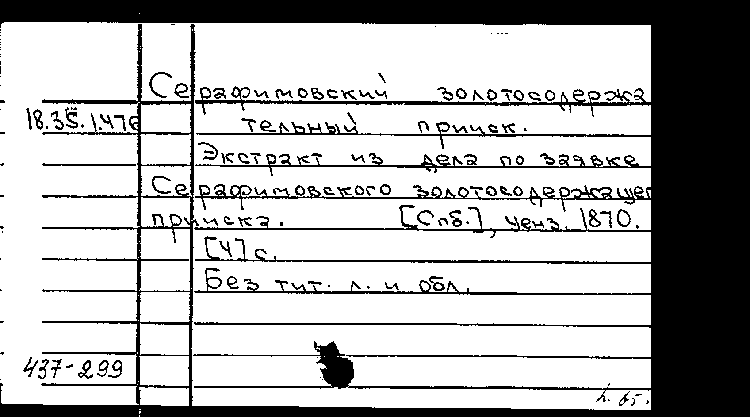 Серафимовский золотосодержа
18.35.1.476
тельный прииск.
Экстракт из дела по заявке
Серафимовского золотосодержащег
прииска. [Спб.], ценз. 1870.
[4] с.
Без тит. л. и обл.
437-299